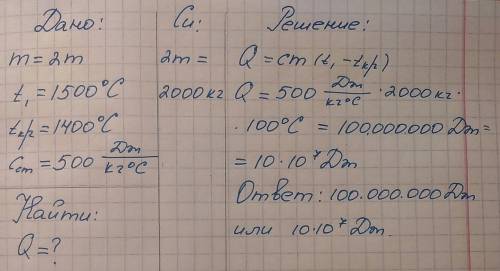 Дано:
m = 2т
t₁ = 1500°C
tкр = 1400°C
Cст = 500 Дж/кг°C
Найти:
Q = ?
Си:
2т =
2000кг
Решение:
Q = cm (t₁ - tкр)
Q = 500 Дж/кг°C · 2000кг ·
· 100°C = 100.000.000 Дж =
= 10 · 10⁷ Дж
Ответ: 100.000.000 Дж
или 10·10⁷ Дж.